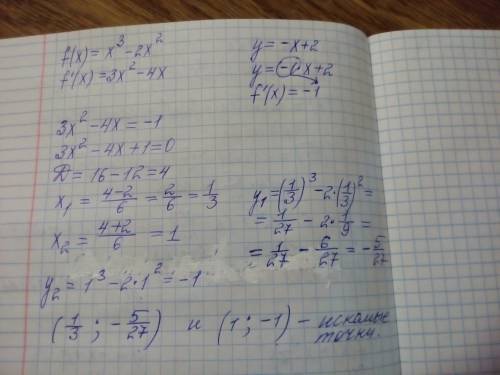 f(x) = x³ - 2x²
f'(x) = 3x² - 4x
y = -x + 2
y = -1·x + 2
f'(x) = -1
3x² - 4x = -1
3x² - 4x + 1 = 0
D = 16 - 12 = 4
x₁ = (4-2)/6 = 2/6 = 1/3
x₂ = (4+2)/6 = 1
y₁ = (1/3)³ - 2·(1/3)² =
= 1/27 - 2·1/9 =
= 1/27 - 6/27 = -5/27
y₂ = 1³ - 2·1² = -1
(1/3 ; -5/27) и (1 ; -1) - искомые
точки.